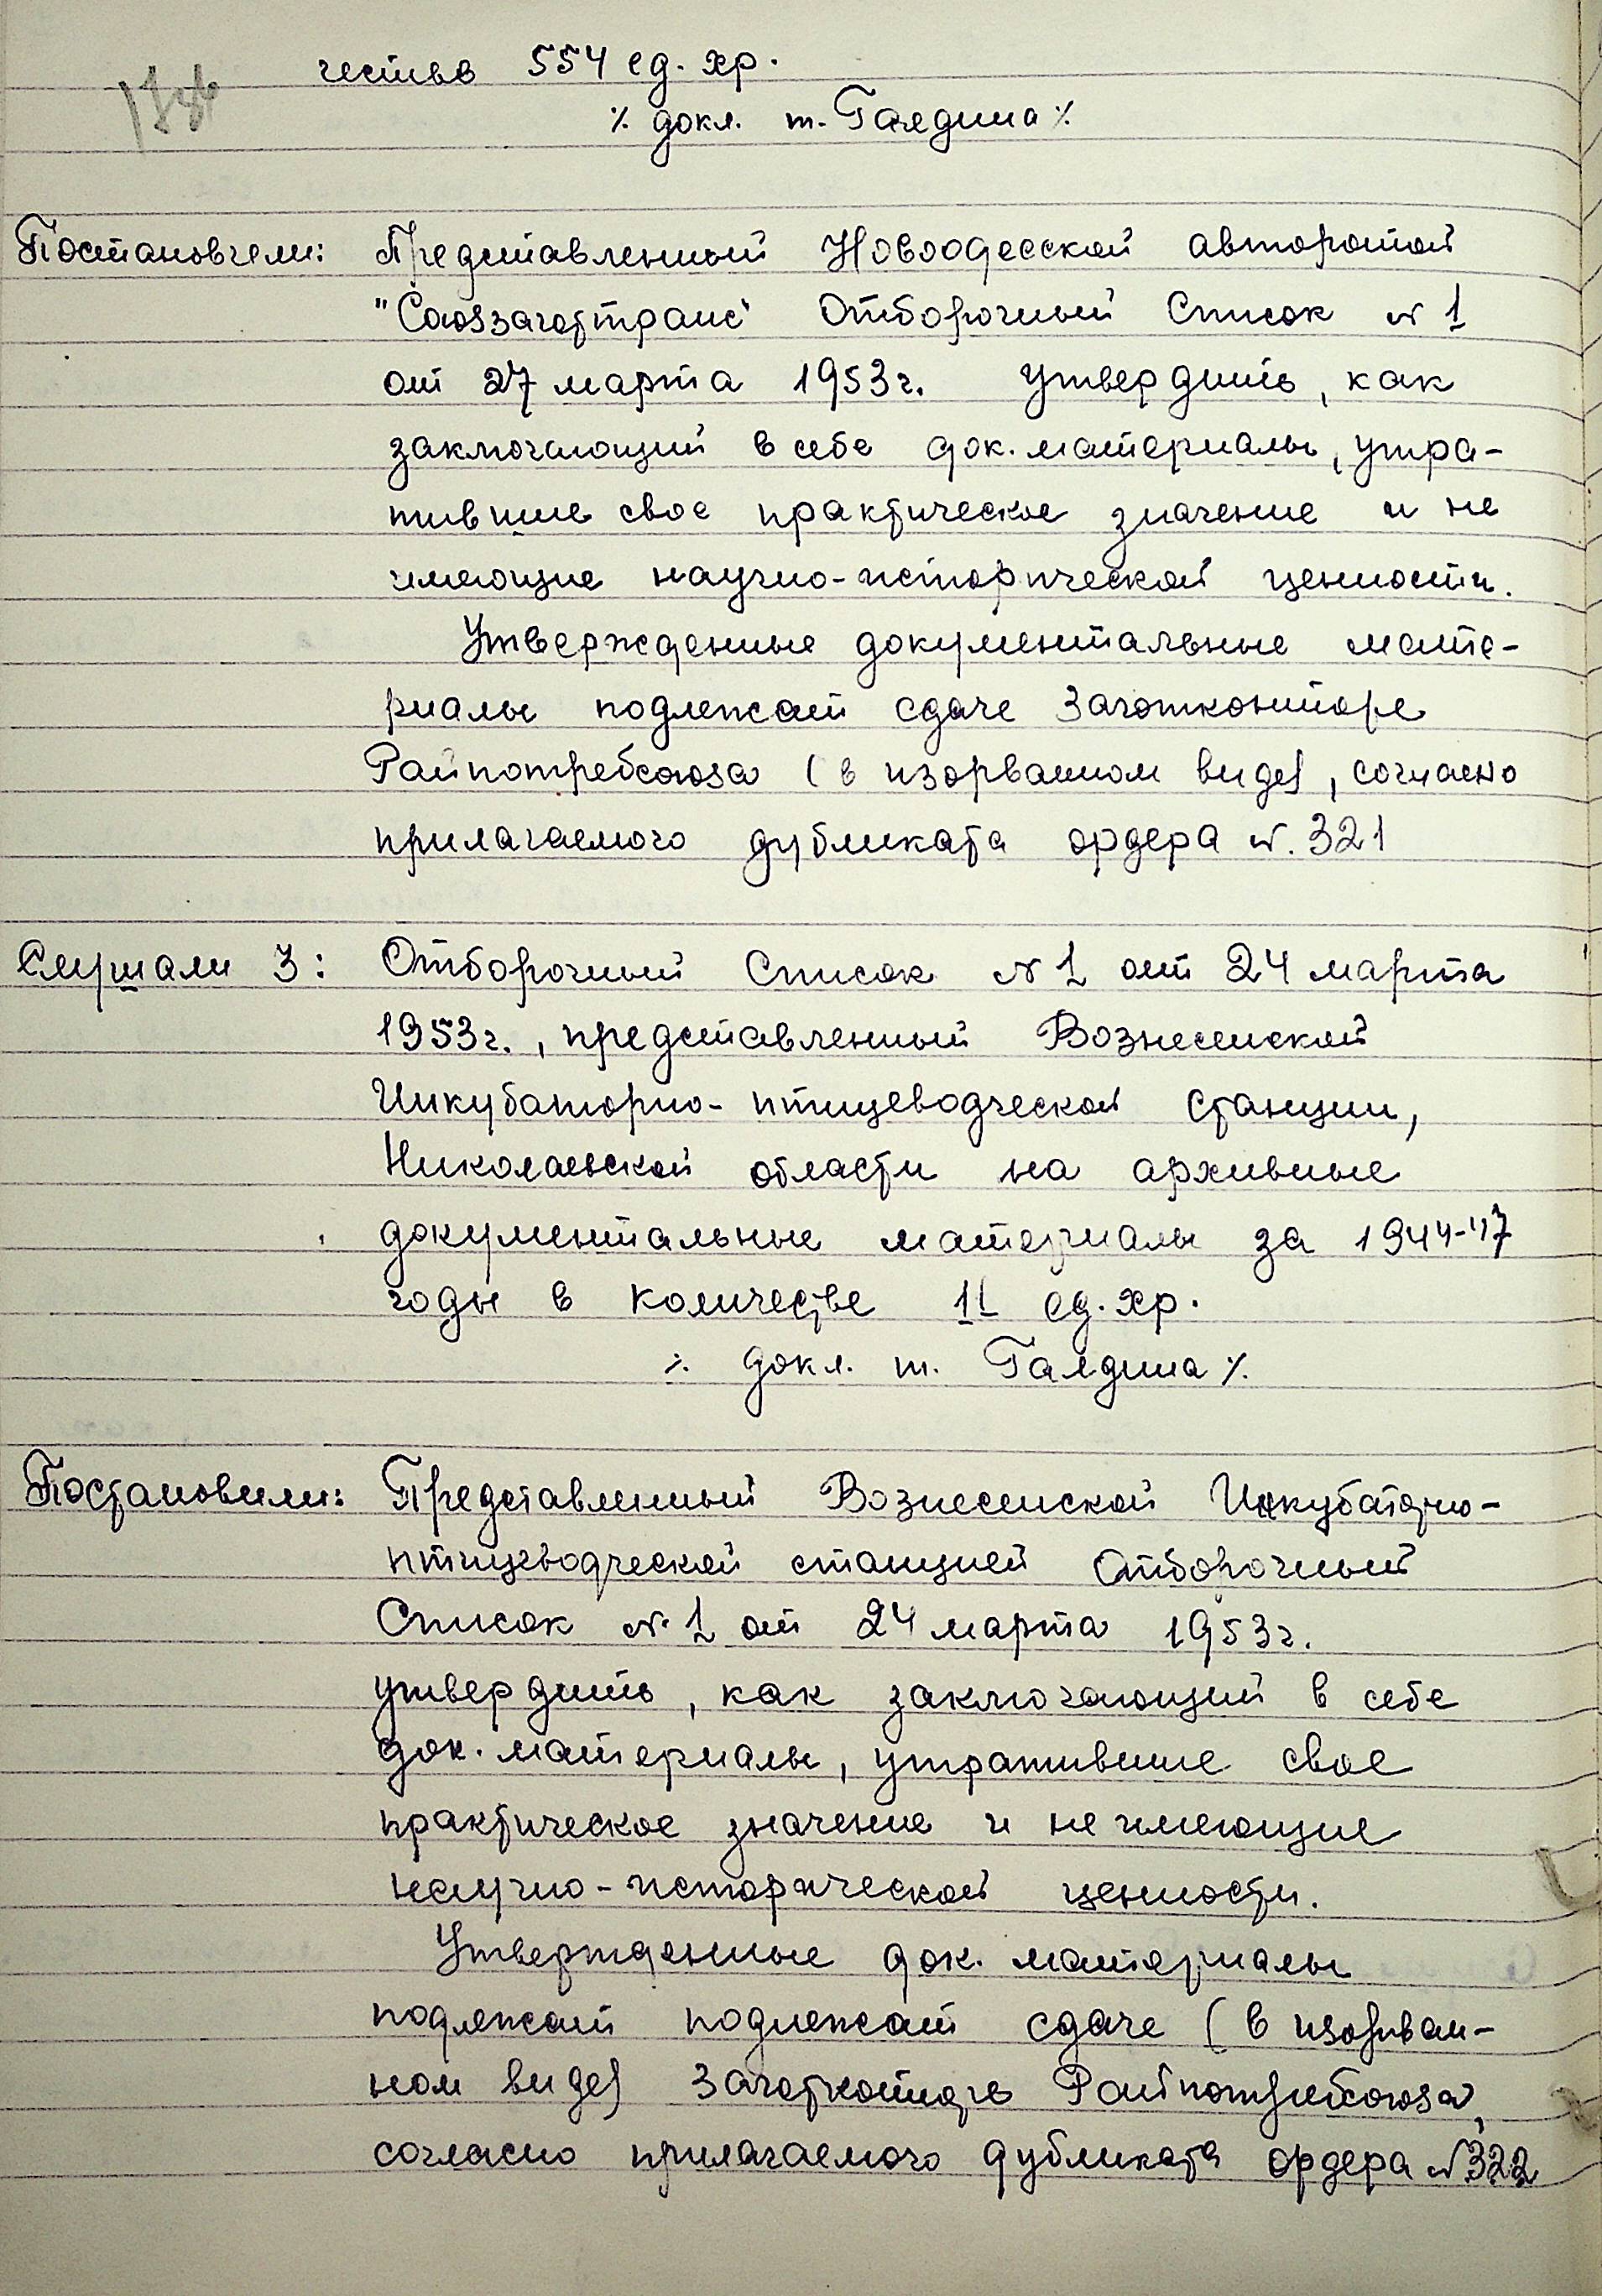 честве 554 ед. хр.
% докл. т. Галдина %
Постановили: Представленный Новоодесской авторотой
"Союззаготтранс" Отборочный Список № 1
от 27 марта 1953г. утвердить, как
заключающий в себе док. материалы, утра-
тившие свое практическое значение и не
имеющие научно-исторической ценности.
Утвержденные документальные мате-
риалы подлежат сдаче Заготконторе
Райпотребсоюза (в изорванном виде), согласно
прилагаемого дубликата ордера №. 321
Слушали 3: Отборочный Список № 1 от 24 марта
1953г., представленный Вознесенской
Инкубаторно-птицеводческой станции,
Николаевской области на архивные
документальные материалы за 1944-47
годы в количестве 11 ед. хр.
% докл. т. Галдина %
Постановили: Представленный Вознесенской Инкубаторно-
птицеводческой станцией Отборочный
Список №. 1 от 24 марта 1953г.
утвердить, как заключающий в себе
док. материалы, утратившие свое
практическое значение и не имеющие
научно-исторической ценности.
Утвержденные док. материалы
подлежат подлежат сдаче (в изорван-
ном виде) Заготконторе Райпотребсоюза,
согласно прилагаемого дубликата ордера № 322